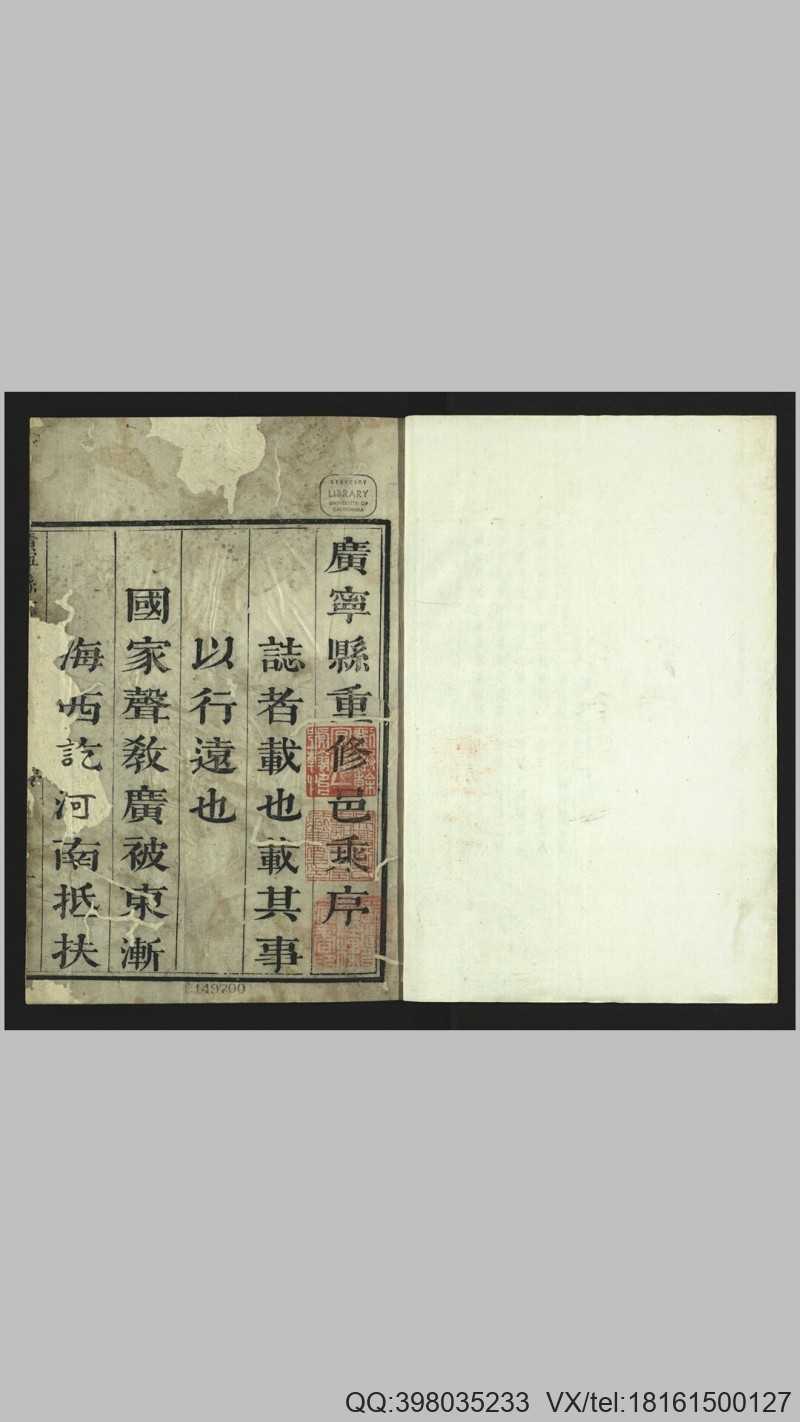 廣寧縣重修邑乘序
誌者載也載其事
以行遠也
國家聲教廣被東漸
海西訖河南抵扶
LIBRARY
UNIVERSITY OF
CALIFORNIA
149700
QQ:398035233 VX/tel:18161500127